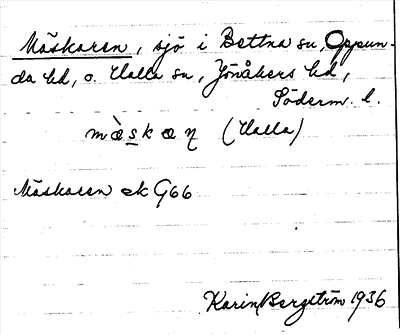 Mäskaren, sjö i Bettna sn, Oppun-
da hd, o. Halla sn, Jönåkers hd,
Söderm. l.
mæ̀skaɳ (Halla)
Mäskaren ek G66
Karin Bergström 1936